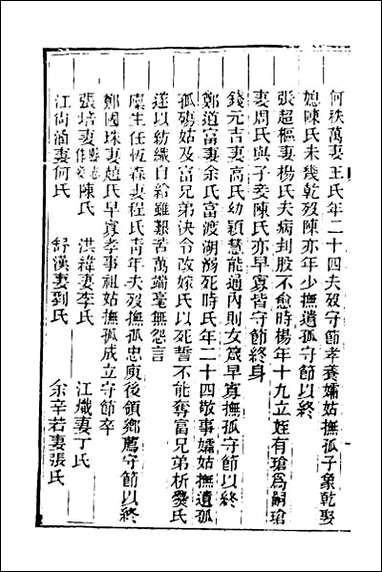 何秩萬妻王氏年二十四夫歿守節孝養孀姑撫孤子象乾娶
媳陳氏未幾乾歿陳亦年少撫遺孤守節以終
張超樞妻楊氏夫病刲股不愈時楊年十九立姪有瑲爲嗣瑲
妻周氏與子婦陳氏亦早寡皆守節終身
錢元吉妻高氏幼穎慧能通內則女箴早寡撫孤守節以終
鄭道富妻余氏富渡湖溺死時氏年二十四敬事孀姑撫遺孤
孤殤姑及富兄弟決令改嫁氏以死誓不能奪富兄弟析爨氏
遂以紡織自給雖艱苦萬端毫無怨言
廩生任恆森妻程氏青年夫歿撫孤忠庾後領鄉薦守節以終
鄭國珠妻趙氏早寡孝事祖姑撫孤成立守節卒
張培妻陳氏 洪緯妻李氏 江熾妻丁氏
江尚涵妻何氏 舒漢妻劉氏 余辛若妻張氏